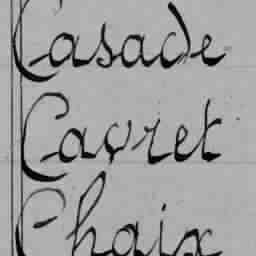 Casade
Cayret
Chaix